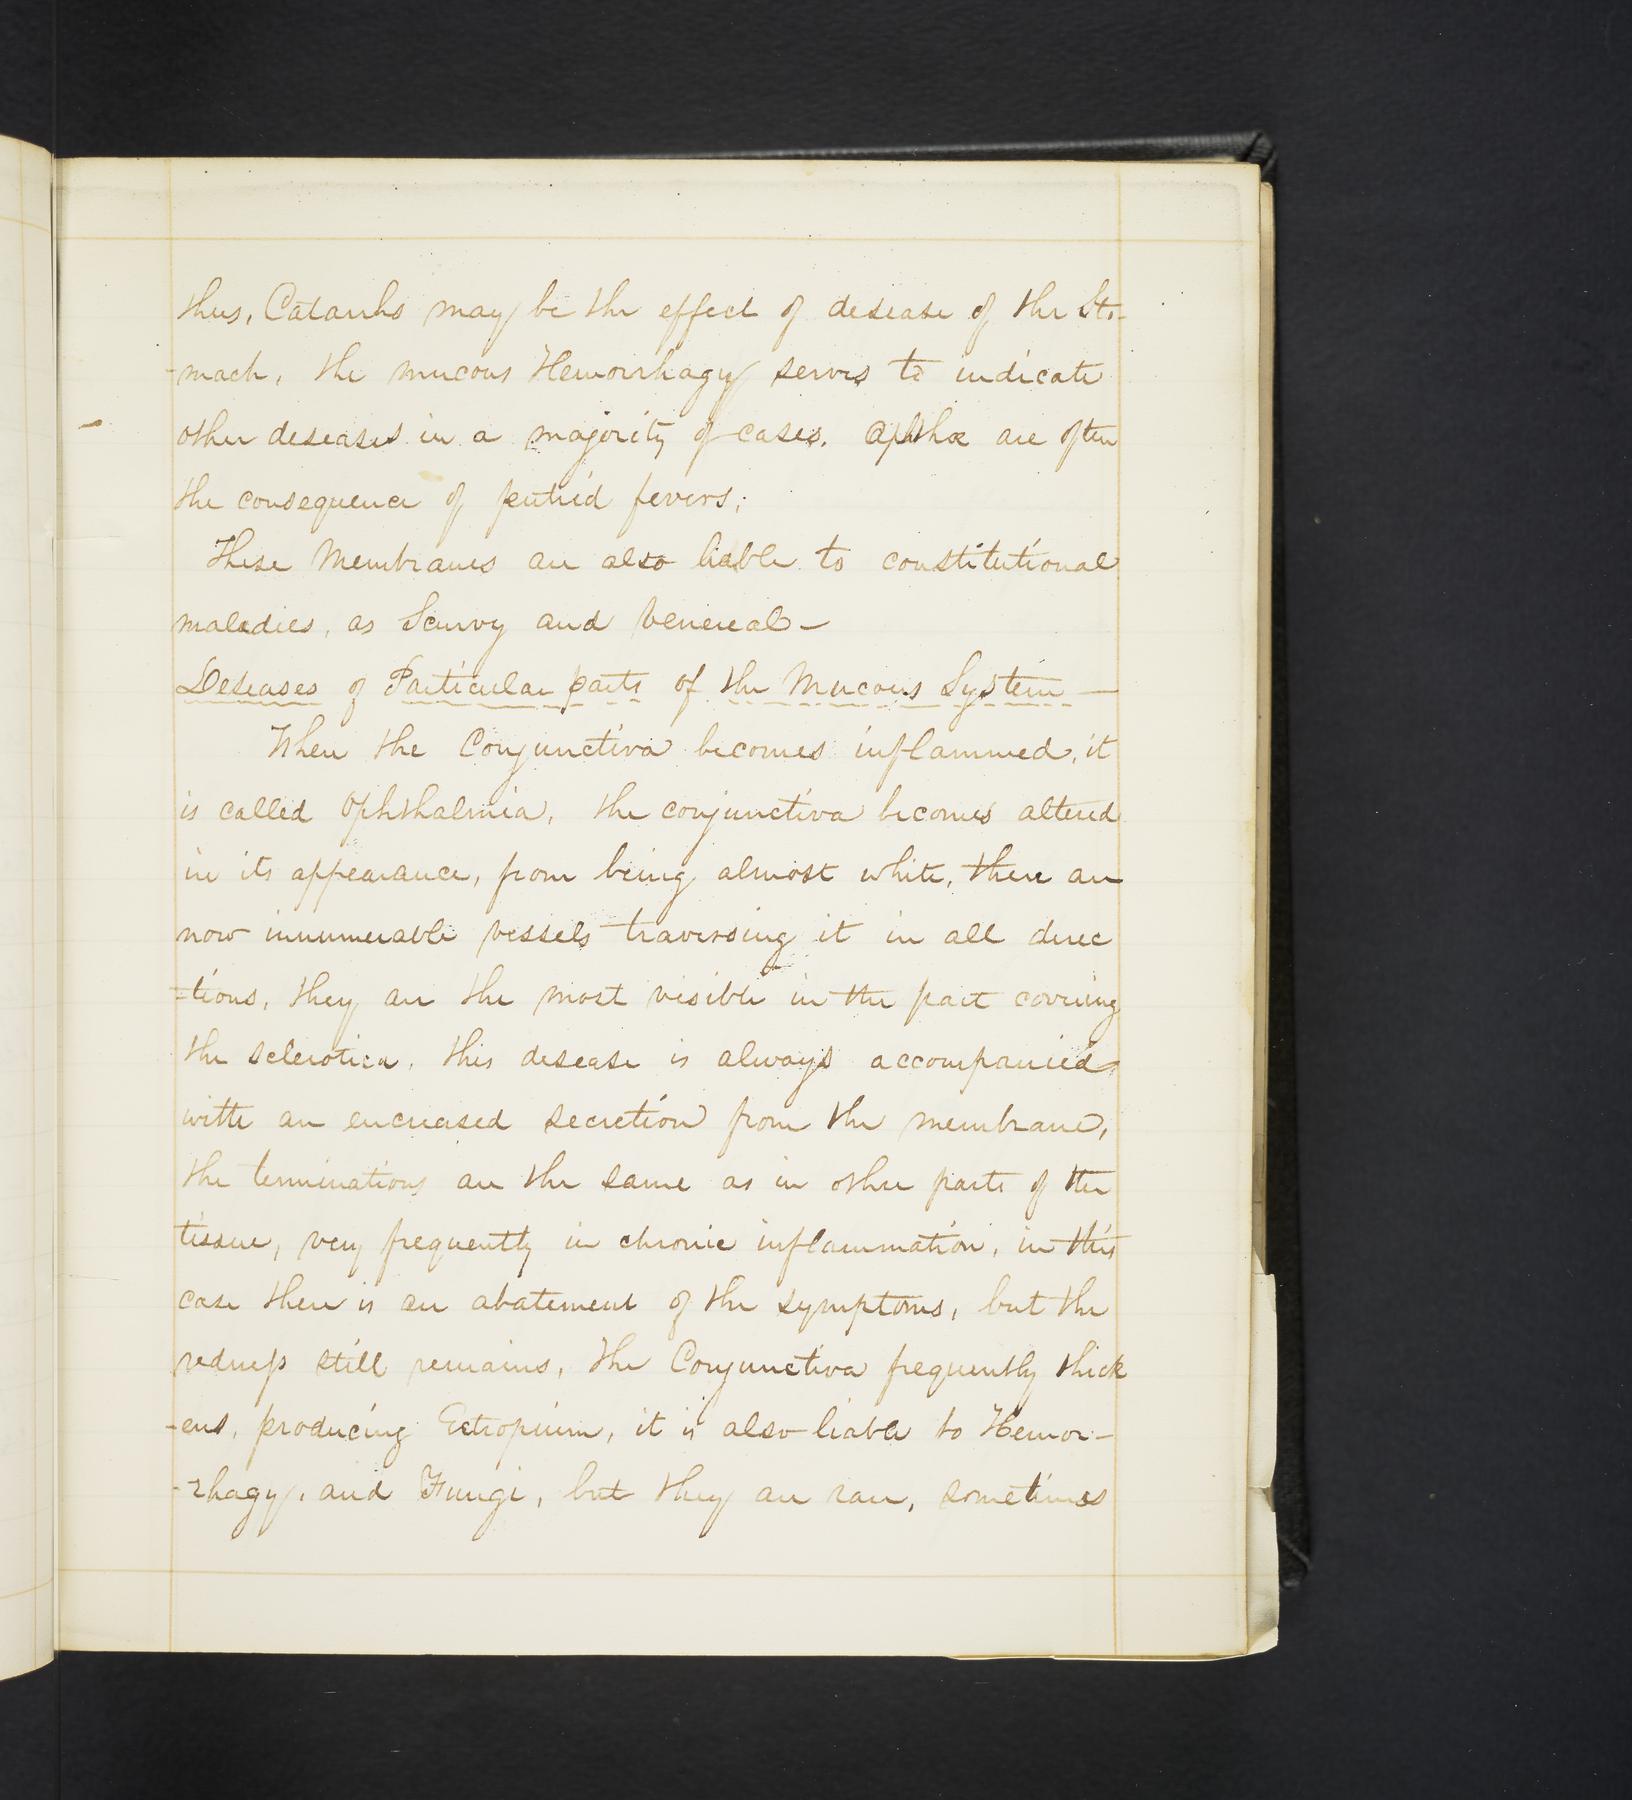 thus, Catarrhs may be the effect of desease of the Sto-
-mach, the mucous Hemorrhagy serves to indicate
other deseases in a majority of cases. Aphthæ are often
the consequence of putrid fevers;
These Membranes are also liable to constitutional
maladies, as Scurvy and Venereal—
Deseases of Particular parts of the Mucous System—
When the Conjunctiva becomes inflammed, it
is called Ophthalmia, the conjunctiva becomes altered
in its appearance, from being almost white, there are
now innumerable vessels traversing it in all direc
=tions, they are the most visible in the part covering
the sclerotica, this desease is always accompanied
with an encreased secretion from the membrane,
the terminations are the same as in other parts of the
tissue, very frequently in chronic inflammation, in this
case there is an abatement of the symptoms, but the
redness still remains, the Conjunctiva frequently thick
-ens, producing Ectropium, it is also liable to Hemor-
-rhagy, and Fungi, but they are rare, sometimes